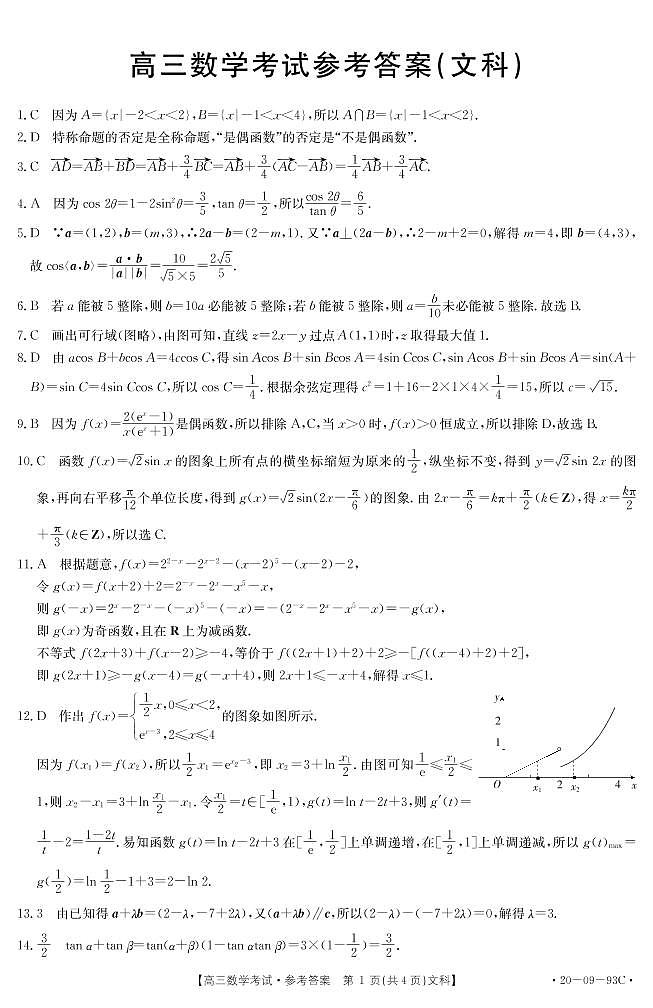 高三数学考试参考答案(文科)
1. C 因为 A={x|-2<x<2},B={x|-1<x<4},所以 A∩B={x|-1<x<2}.
2. D 特称命题的否定是全称命题,“是偶函数”的否定是“不是偶函数”.
3. C AD→=AB→+BD→=AB→+3/4 BC→=AB→+3/4(AC→-AB→)=1/4 AB→+3/4 AC→.
4. A 因为 cos 2θ=1-2sin²θ=3/5,tan θ=1/2,所以 cos 2θ/tan θ=6/5.
5. D ∵a=(1,2),b=(m,3),∴2a-b=(2-m,1). 又∵a⊥(2a-b),∴2-m+2=0,解得 m=4,即 b=(4,3),
故 cos⟨a,b⟩=a·b/(|a||b|)=10/(√5×5)=2√5/5.
6. B 若 a 能被 5 整除,则 b=10a 必能被 5 整除;若 b 能被 5 整除,则 a=b/10 未必能被 5 整除. 故选 B.
7. C 画出可行域(图略),由图可知,直线 z=2x-y 过点 A(1,1)时,z 取得最大值 1.
8. D 由 acos B+bcos A=4ccos C,得 sin Acos B+sin Bcos A=4sin Ccos C,sin Acos B+sin Bcos A=sin(A+
B)=sin C=4sin Ccos C,所以 cos C=1/4. 根据余弦定理得 c²=1+16-2×1×4×1/4=15,所以 c=√15.
9. B 因为 f(x)=2(eˣ-1)/(x(eˣ+1))是偶函数,所以排除 A,C,当 x>0 时,f(x)>0 恒成立,所以排除 D,故选 B.
10. C 函数 f(x)=√2sin x 的图象上所有点的横坐标缩短为原来的1/2,纵坐标不变,得到 y=√2sin 2x 的图
象,再向右平移π/12个单位长度,得到 g(x)=√2sin(2x-π/6)的图象. 由 2x-π/6=kπ+π/2(k∈Z),得 x=kπ/2
+π/3(k∈Z),所以选 C.
11. A 根据题意,f(x)=2²⁻ˣ-2ˣ⁻²-(x-2)⁵-(x-2)-2,
令 g(x)=f(x+2)+2=2⁻ˣ-2ˣ-x⁵-x,
则 g(-x)=2ˣ-2⁻ˣ-(-x)⁵-(-x)=-(2⁻ˣ-2ˣ-x⁵-x)=-g(x),
即 g(x)为奇函数,且在 R 上为减函数.
不等式 f(2x+3)+f(x-2)≥-4,等价于 f((2x+1)+2)+2≥-[f((x-4)+2)+2],
即 g(2x+1)≥-g(x-4)=g(-x+4),则 2x+1≤-x+4,解得 x≤1.
12. D 作出 f(x)={1/2 x,0≤x<2, eˣ⁻³,2≤x≤4 的图象如图所示.
因为 f(x₁)=f(x₂),所以1/2 x₁=e^(x₂-3),即 x₂=3+ln x₁/2. 由图可知1/e≤x₁/2≤
1,则 x₂-x₁=3+ln x₁/2-x₁. 令x₁/2=t∈[1/e,1),g(t)=ln t-2t+3,则 g′(t)=
1/t-2=(1-2t)/t. 易知函数 g(t)=ln t-2t+3 在[1/e,1/2]上单调递增,在[1/2,1]上单调递减,所以 g(t)max=
g(1/2)=ln 1/2-1+3=2-ln 2.
y
2
1
O x₁ 2 x₂ 4 x
13. 3 由已知得 a+λb=(2-λ,-7+2λ),又(a+λb)∥c,所以(2-λ)-(-7+2λ)=0,解得 λ=3.
14. 3/2 tan α+tan β=tan(α+β)(1-tan αtan β)=3×(1-1/2)=3/2.
【高三数学考试·参考答案 第 1 页(共 4 页)文科】
·20-09-93C·